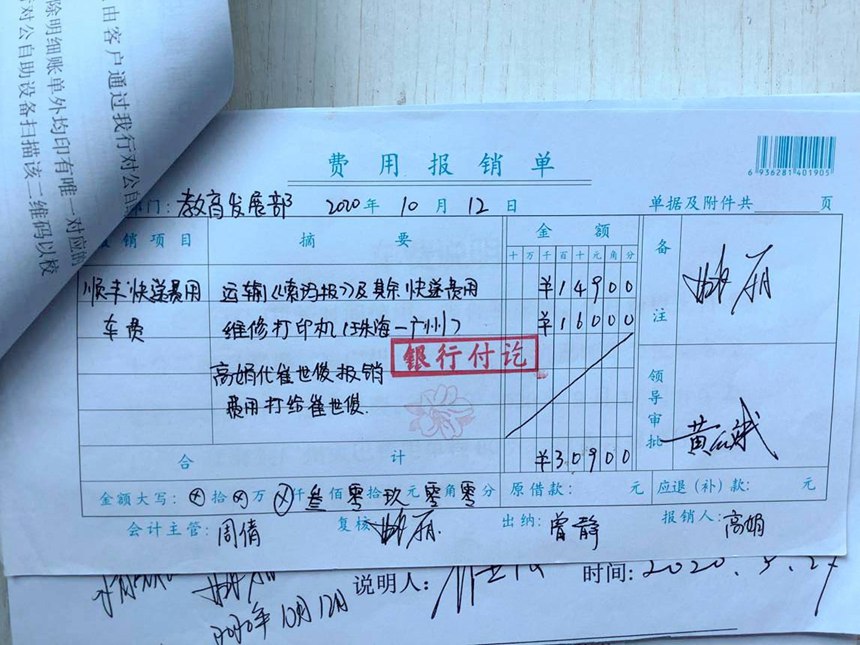 由客户通过我行对公自
除明细账单外均印有唯一对应的
行对公自助设备扫描该二维码以校
费用报销单
6 936281 401905
部门: 教育发展部 2020年 10月 12日 单据及附件共 页
报销项目 摘要 金额 备注
十万千百十元角分
顺丰快递费用 运输《 报》及其余快递费用 ¥14900
车费 维修打印机(珠海—广州) ¥16000
银行付讫
高娟代崔世俊报销
费用打给崔世俊.
领导审批
合计 ¥30900
金额大写: ⊗拾⊗万⊗仟叁佰零拾玖元零角零分 原借款: 元 应退(补)款: 元
会计主管: 周倩 复核 出纳: 曾静 报销人: 高娟
说明人: 时间: 2020.
2020年10月12日